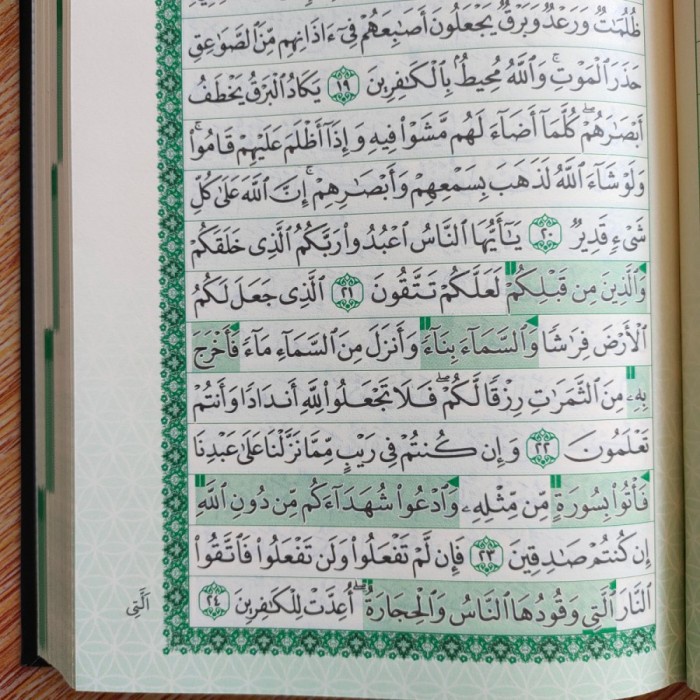 ظُلُمَٰتٌ وَرَعْدٌ وَبَرْقٌ يَجْعَلُونَ أَصَٰبِعَهُمْ فِىٓ ءَاذَانِهِم مِّنَ ٱلصَّوَٰعِقِ
حَذَرَ ٱلْمَوْتِ ۚ وَٱللَّهُ مُحِيطٌۢ بِٱلْكَٰفِرِينَ ١٩ يَكَادُ ٱلْبَرْقُ يَخْطَفُ
أَبْصَٰرَهُمْ ۖ كُلَّمَآ أَضَآءَ لَهُم مَّشَوْا۟ فِيهِ وَإِذَآ أَظْلَمَ عَلَيْهِمْ قَامُوا۟ ۚ
وَلَوْ شَآءَ ٱللَّهُ لَذَهَبَ بِسَمْعِهِمْ وَأَبْصَٰرِهِمْ ۚ إِنَّ ٱللَّهَ عَلَىٰ كُلِّ
شَىْءٍ قَدِيرٌ ٢٠ يَٰٓأَيُّهَا ٱلنَّاسُ ٱعْبُدُوا۟ رَبَّكُمُ ٱلَّذِى خَلَقَكُمْ
وَٱلَّذِينَ مِن قَبْلِكُمْ لَعَلَّكُمْ تَتَّقُونَ ٢١ ٱلَّذِى جَعَلَ لَكُمُ
ٱلْأَرْضَ فِرَٰشًا وَٱلسَّمَآءَ بِنَآءً وَأَنزَلَ مِنَ ٱلسَّمَآءِ مَآءً فَأَخْرَجَ
بِهِۦ مِنَ ٱلثَّمَرَٰتِ رِزْقًا لَّكُمْ ۖ فَلَا تَجْعَلُوا۟ لِلَّهِ أَندَادًا وَأَنتُمْ
تَعْلَمُونَ ٢٢ وَإِن كُنتُمْ فِى رَيْبٍ مِّمَّا نَزَّلْنَا عَلَىٰ عَبْدِنَا
فَأْتُوا۟ بِسُورَةٍ مِّن مِّثْلِهِۦ وَٱدْعُوا۟ شُهَدَآءَكُم مِّن دُونِ ٱللَّهِ
إِن كُنتُمْ صَٰدِقِينَ ٢٣ فَإِن لَّمْ تَفْعَلُوا۟ وَلَن تَفْعَلُوا۟ فَٱتَّقُوا۟
ٱلنَّارَ ٱلَّتِى وَقُودُهَا ٱلنَّاسُ وَٱلْحِجَارَةُ ۖ أُعِدَّتْ لِلْكَٰفِرِينَ ٢٤
ٱلَّتِى